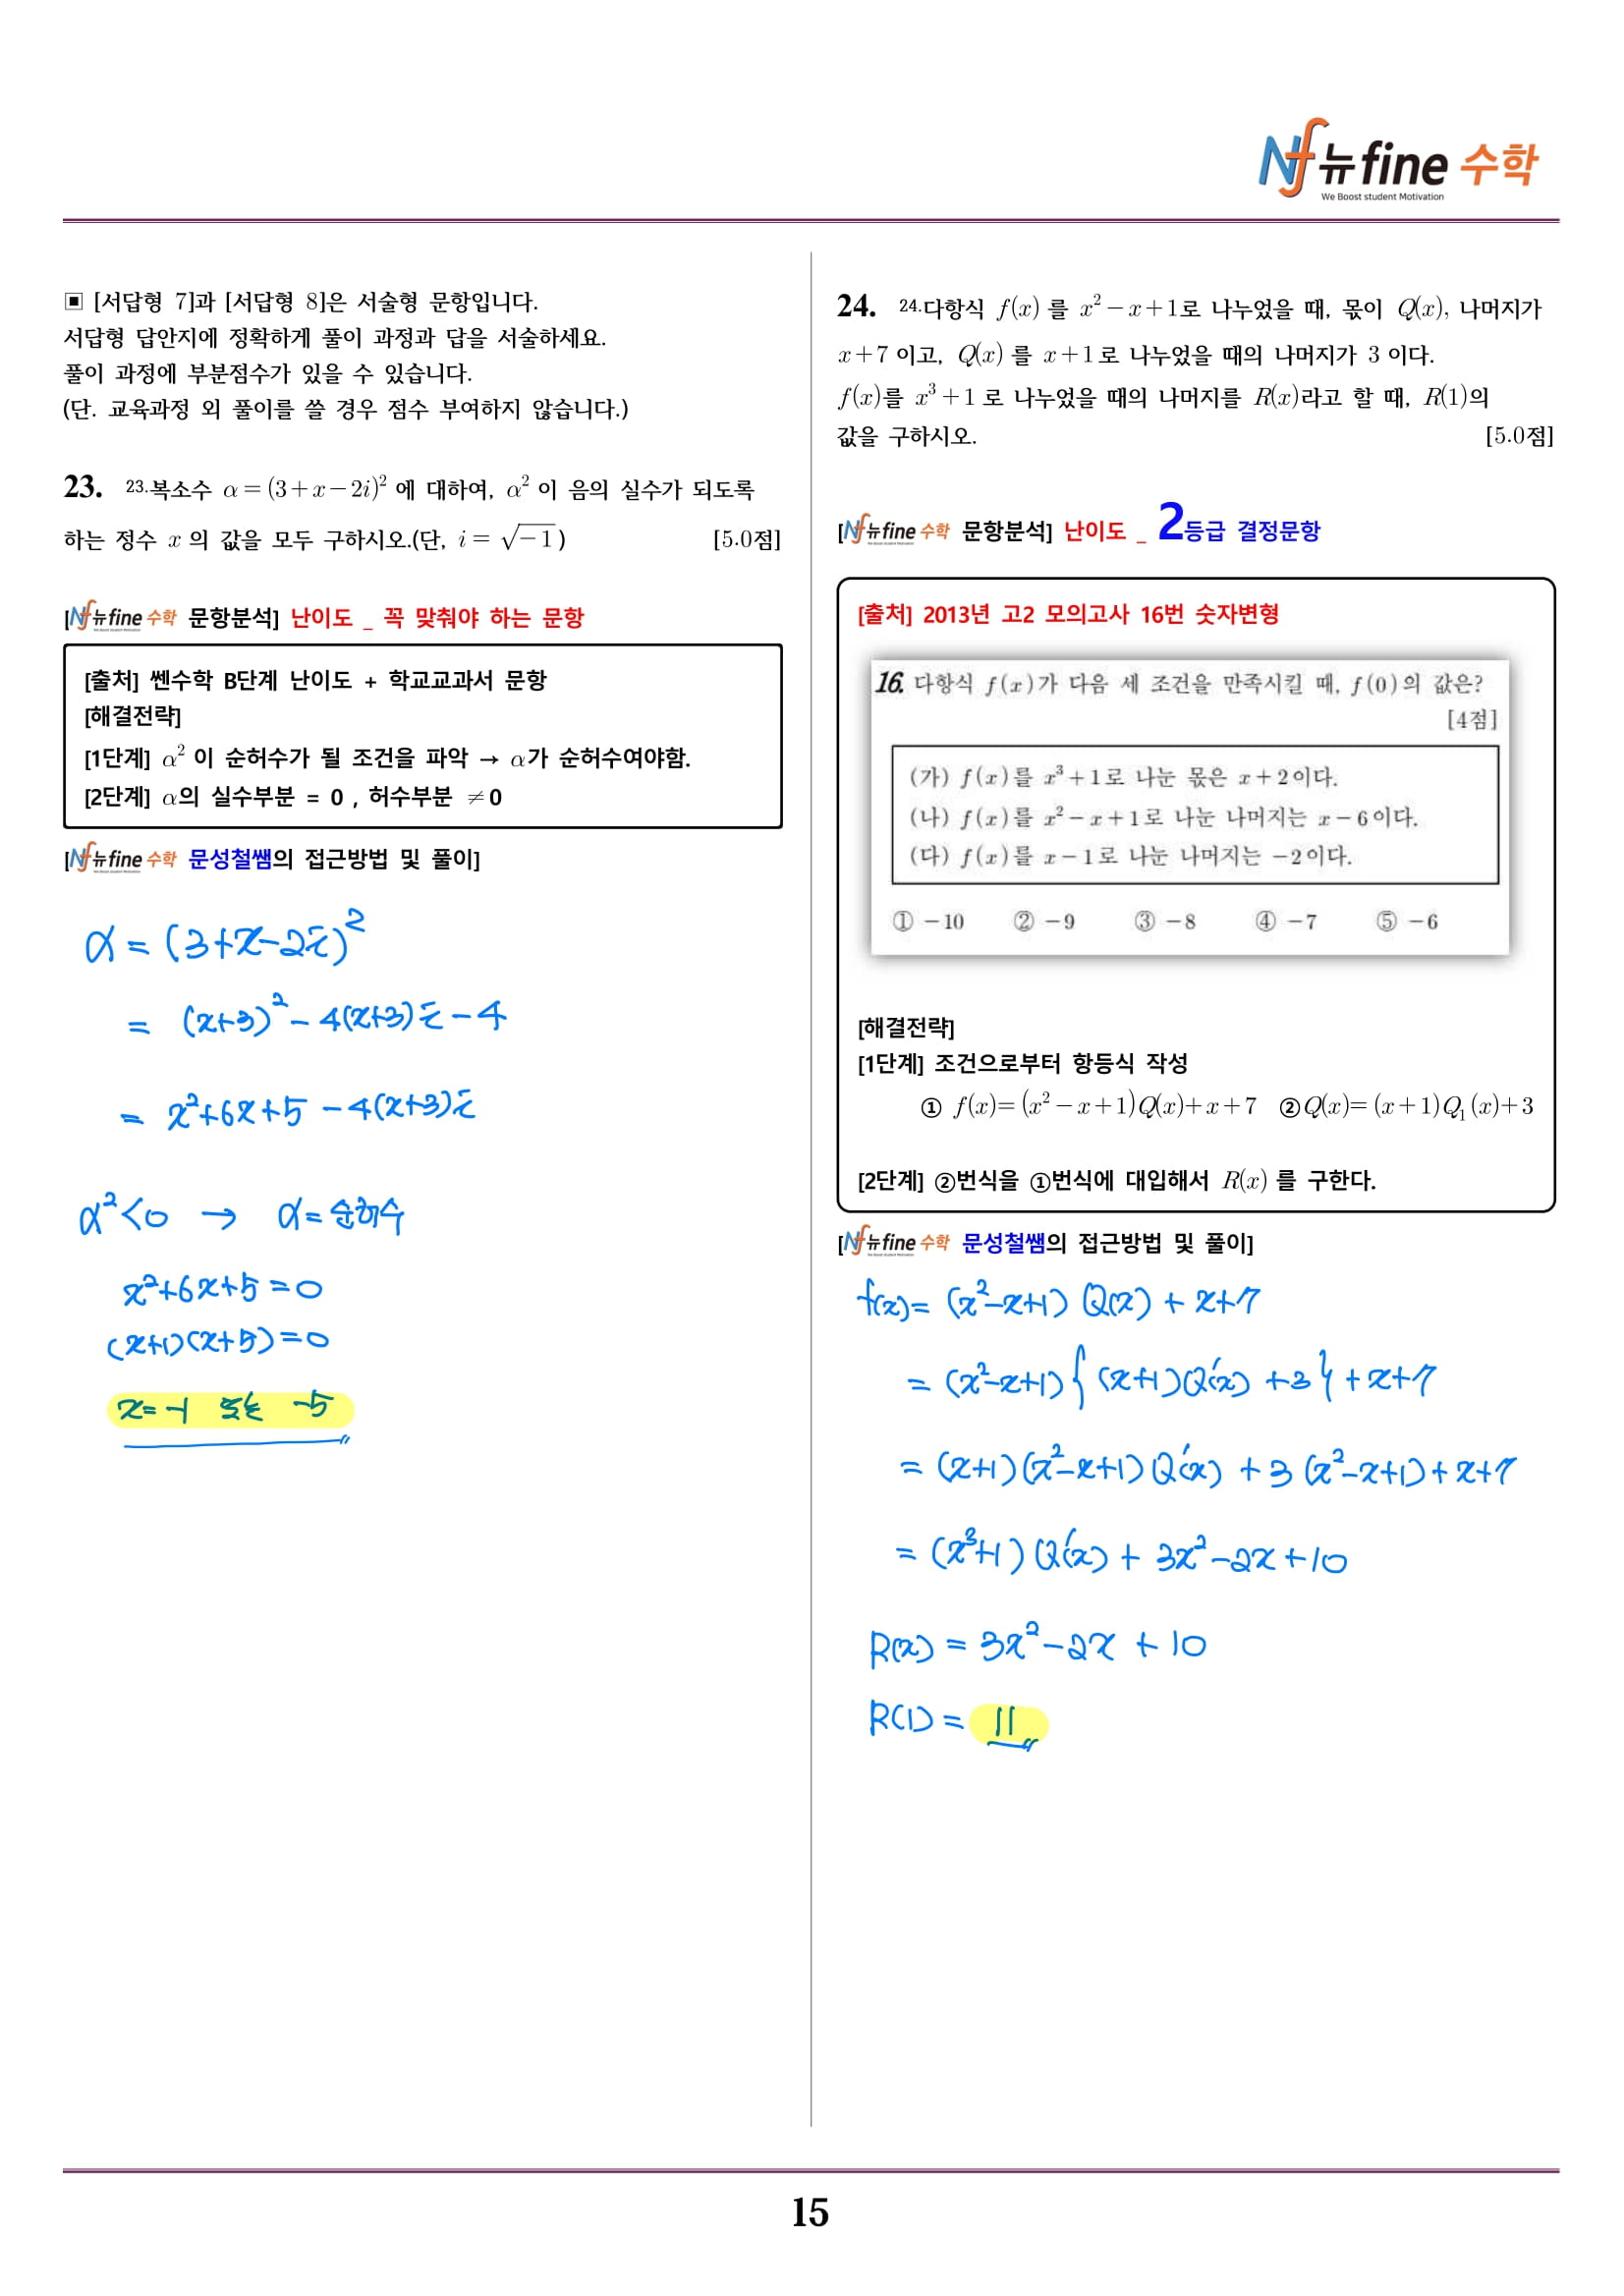 Nf 뉴fine 수학
We Boost student Motivation
▣ [서답형 7]과 [서답형 8]은 서술형 문항입니다.
서답형 답안지에 정확하게 풀이 과정과 답을 서술하세요.
풀이 과정에 부분점수가 있을 수 있습니다.
(단. 교육과정 외 풀이를 쓸 경우 점수 부여하지 않습니다.)
23. 23.복소수 α = (3+x−2i)² 에 대하여, α² 이 음의 실수가 되도록
하는 정수 x 의 값을 모두 구하시오.(단, i = √−1 ) [5.0점]
[Nf 뉴fine 수학 문항분석] 난이도 _ 꼭 맞춰야 하는 문항
[출처] 쎈수학 B단계 난이도 + 학교교과서 문항
[해결전략]
[1단계] α² 이 순허수가 될 조건을 파악 → α가 순허수여야함.
[2단계] α의 실수부분 = 0 , 허수부분 ≠0
[Nf 뉴fine 수학 문성철쌤의 접근방법 및 풀이]
α = (3+x−2i)²
= (x+3)² − 4(x+3)i − 4
= x²+6x+5 − 4(x+3)i
α²<0 → α = 순허수
x²+6x+5 = 0
(x+1)(x+5) = 0
x = −1 또는 −5
24. 24.다항식 f(x) 를 x²−x+1로 나누었을 때, 몫이 Q(x), 나머지가
x+7 이고, Q(x) 를 x+1 로 나누었을 때의 나머지가 3 이다.
f(x)를 x³+1 로 나누었을 때의 나머지를 R(x)라고 할 때, R(1)의
값을 구하시오. [5.0점]
[Nf 뉴fine 수학 문항분석] 난이도 _ 2등급 결정문항
[출처] 2013년 고2 모의고사 16번 숫자변형
16. 다항식 f(x)가 다음 세 조건을 만족시킬 때, f(0)의 값은?
[4점]
(가) f(x)를 x³+1로 나눈 몫은 x+2이다.
(나) f(x)를 x²−x+1로 나눈 나머지는 x−6이다.
(다) f(x)를 x−1로 나눈 나머지는 −2이다.
① −10 ② −9 ③ −8 ④ −7 ⑤ −6
[해결전략]
[1단계] 조건으로부터 항등식 작성
① f(x)= (x²−x+1)Q(x)+x+7 ②Q(x)= (x+1)Q₁(x)+3
[2단계] ②번식을 ①번식에 대입해서 R(x) 를 구한다.
[Nf 뉴fine 수학 문성철쌤의 접근방법 및 풀이]
f(x)= (x²−x+1) Q(x) + x+7
= (x²−x+1) { (x+1)Q'(x) +3 } + x+7
= (x+1)(x²−x+1) Q'(x) + 3 (x²−x+1) + x+7
= (x³+1) Q'(x) + 3x²−2x+10
R(x) = 3x²−2x + 10
R(1) = 11
15